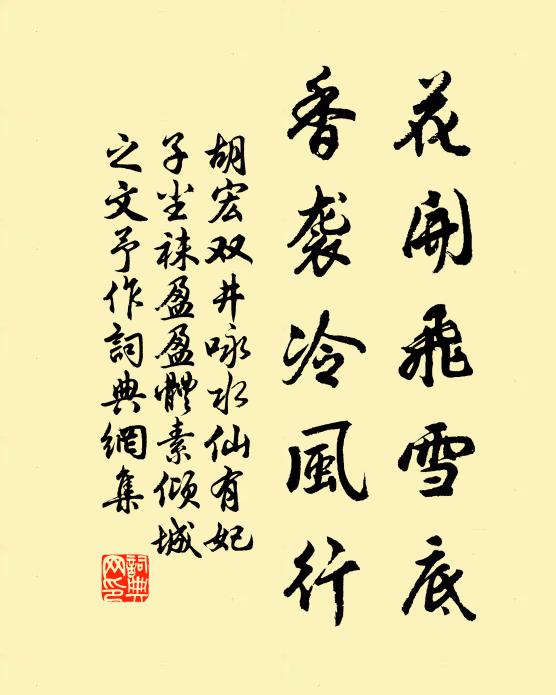 花開飛雪底
香袭冷風行
胡宏双井咏水仙有妃
子尘袜盈盈體素倾城
之文予作詞典網集
詞典
网印